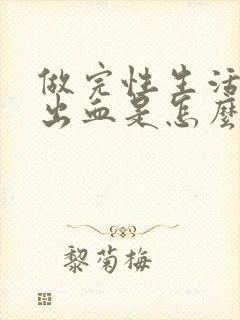 做完性生活
出血是怎麼
黎菊梅